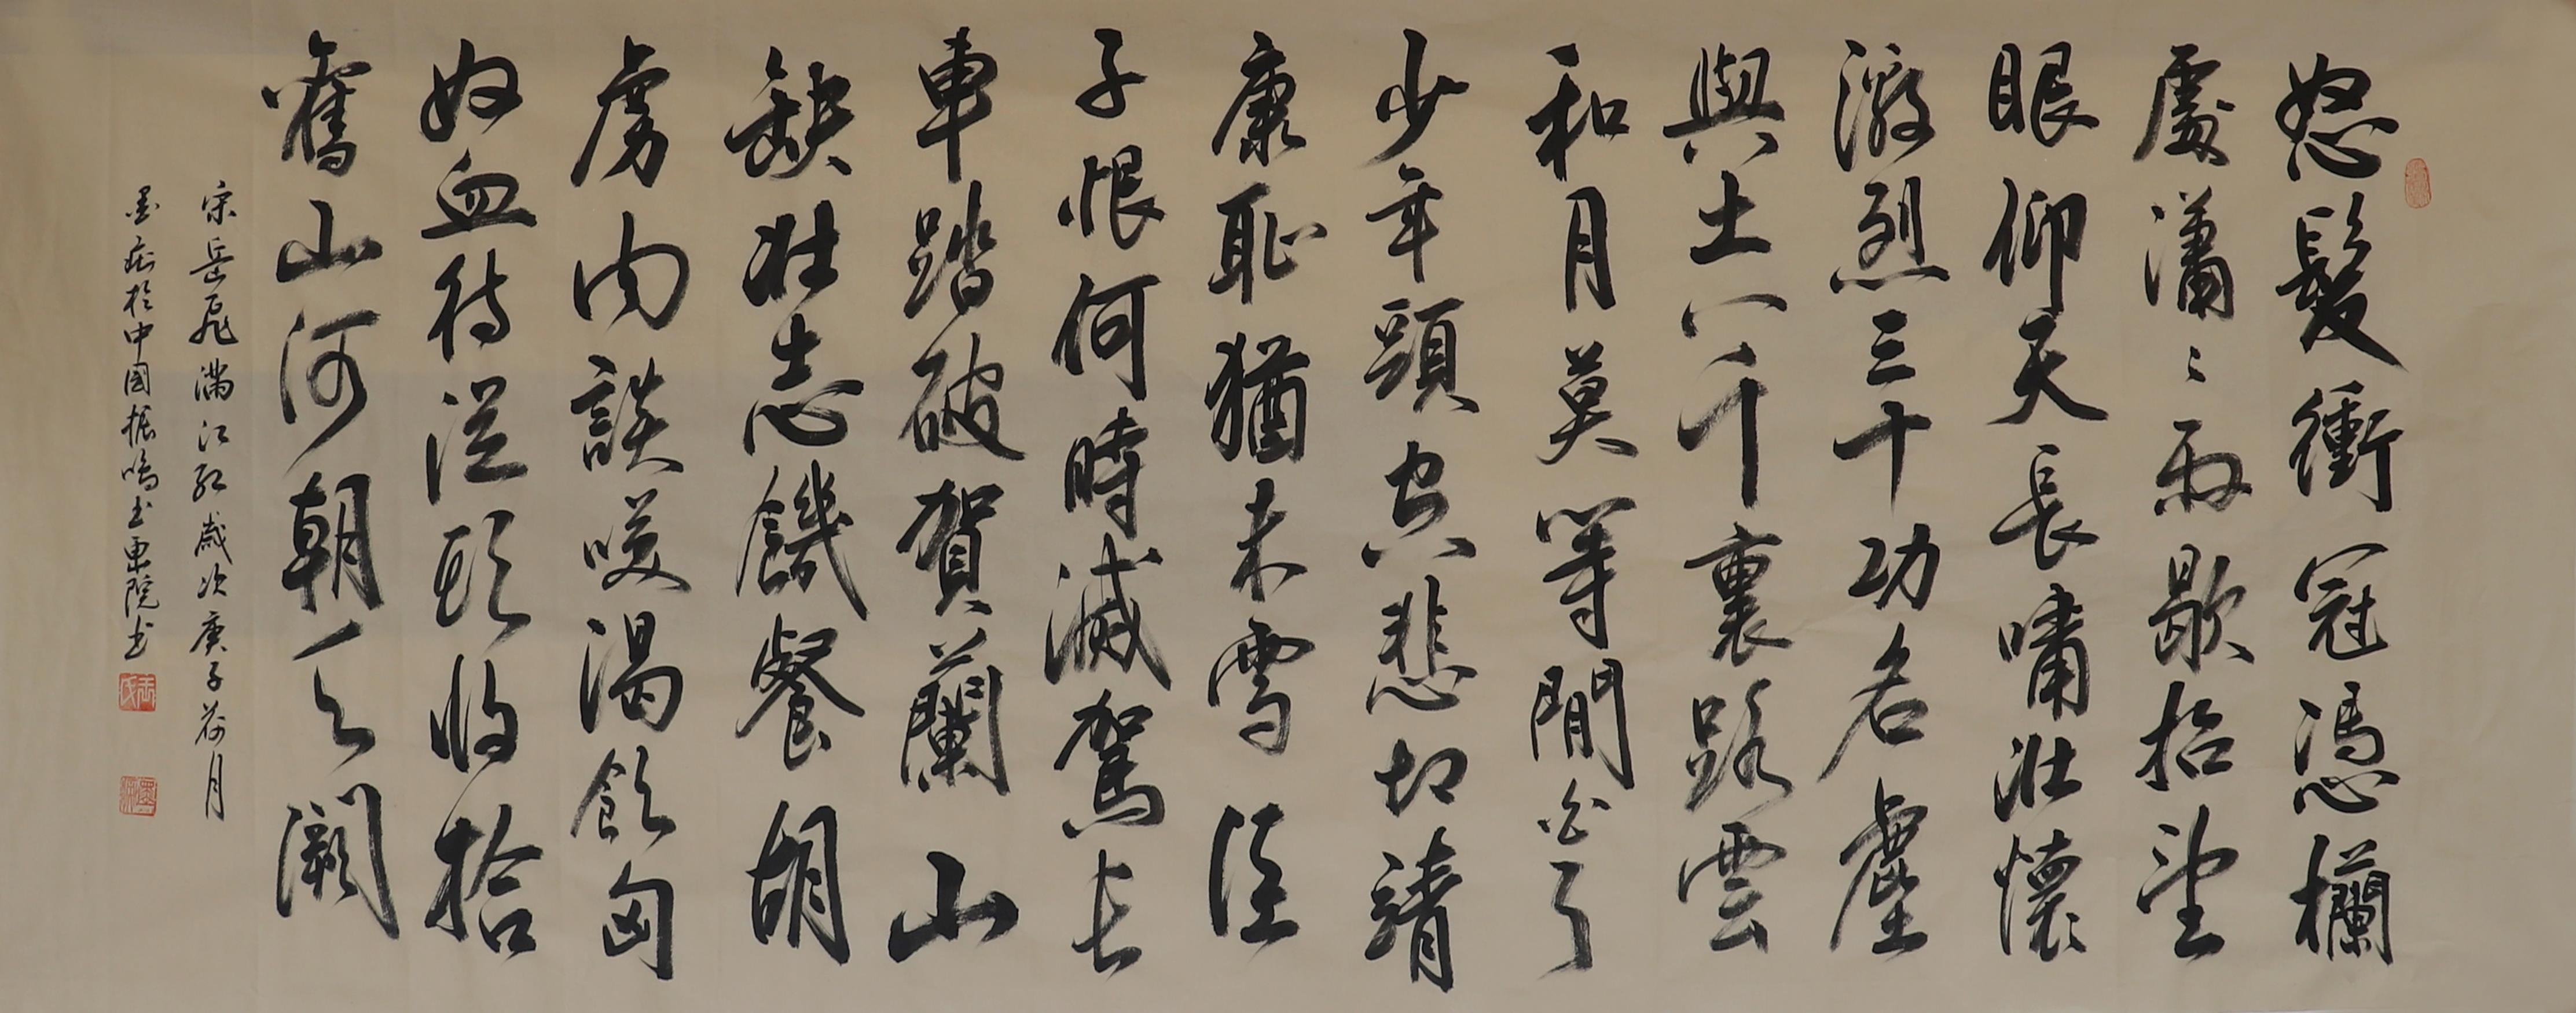 怒髮衝冠憑欄
處瀟〻雨歇抬望
眼仰天長嘯壯懷
激烈三十功名塵
與土八千裏路雲
和月莫等閒白了
少年頭空悲切靖
康恥猶未雪臣
子恨何時滅駕长
車踏破賀蘭山
缺壯志饑餐胡
虜肉談笑渴飲匈
奴血待從頭收拾
舊山河朝天闕
宋岳飛滿江紅歲次庚子荷月
於中国振鳴書画院書